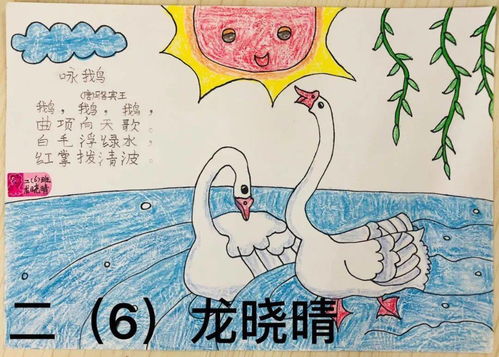 咏鹅
（唐）骆宾王
鹅，鹅，鹅，
曲项向天歌。
白毛浮绿水，
红掌拨清波。
二（6）班
龙晓晴
二（6）龙晓晴